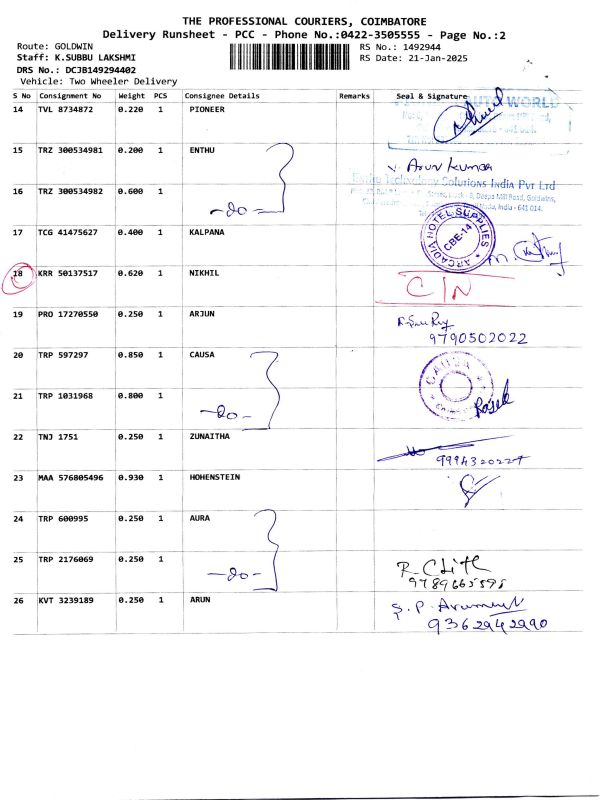 THE PROFESSIONAL COURIERS, COIMBATORE
Delivery Runsheet - PCC - Phone No.:0422-3505555 - Page No.:2
Route: GOLDWIN RS No.: 1492944
Staff: K.SUBBU LAKSHMI RS Date: 21-Jan-2025
DRS No.: DCJB149294402
Vehicle: Two Wheeler Delivery
S No Consignment No Weight PCS Consignee Details Remarks Seal & Signature
14 TVL 8734872 0.220 1 PIONEER WORLD
15 TRZ 300534981 0.200 1 ENTHU V. Arun Kumar
16 TRZ 300534982 0.600 1 -do- Technology Solutions India Pvt Ltd
Deepa Mill Road, Goldwins,
India - 641 014.
17 TCG 41475627 0.400 1 KALPANA ARCADIA HOTEL SUPPLIES CBE-14
18 KRR 50137517 0.620 1 NIKHIL C/N
19 PRO 17270550 0.250 1 ARJUN
9790502022
20 TRP 597297 0.850 1 CAUSA CAUSA
21 TRP 1031968 0.800 1 -do-
22 TNJ 1751 0.250 1 ZUNAITHA
9994320227
23 MAA 576805496 0.930 1 HOHENSTEIN
24 TRP 600995 0.250 1 AURA
25 TRP 2176069 0.250 1 -do-
26 KVT 3239189 0.250 1 ARUN
9362942990